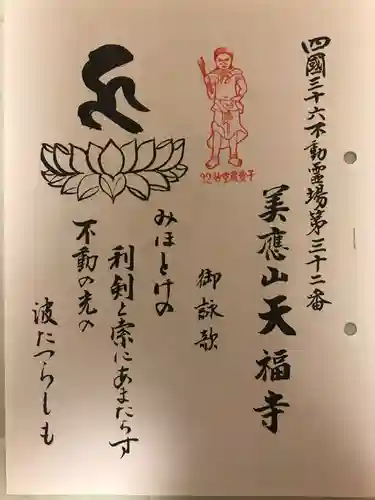 四國三十六不動霊場第三十二番
美應山天福寺
32妙空蔵童子
御詠歌
みほとけの
利剣と索にあまたらす
不動の光の
波たつらしも